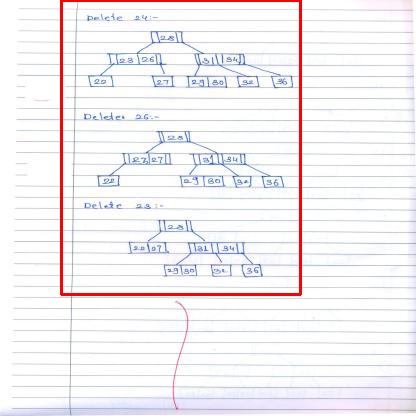 Delete 24:-
28
23 26 31 34
22 27 29 30 32 36
Delete 26:-
28
23 27 31 34
22 29 30 32 36
Delete 23:-
28
22 27 31 34
29 30 32 36